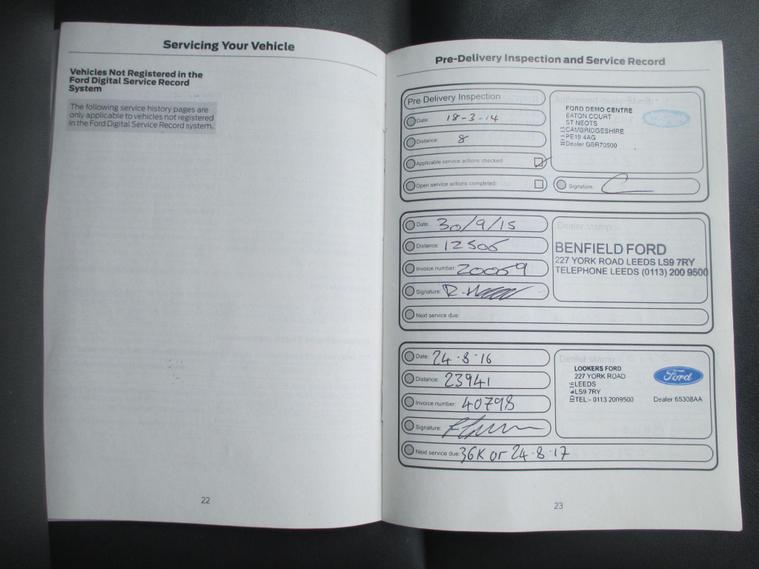 Servicing Your Vehicle
Vehicles Not Registered in the
Ford Digital Service Record
System
The following service history pages are
only applicable to vehicles not registered
in the Ford Digital Service Record system.
22
Pre-Delivery Inspection and Service Record
Pre Delivery Inspection
Date: 18-3-14
Distance: 8
Applicable service actions checked
Open service actions completed:
FORD DEMO CENTRE
EATON COURT
ST NEOTS
CAMBRIDGESHIRE
PE19 4AG
Dealer GBR70500
Signature:
Date: 30/9/15
Distance: 12506
Invoice number: 20069
Signature:
Next service due:
Dealer stamp:
BENFIELD FORD
227 YORK ROAD LEEDS LS9 7RY
TELEPHONE LEEDS (0113) 200 9500
Date: 24-8-16
Distance: 23941
Invoice number: 40798
Signature:
Next service due: 36K or 24-8-17
Dealer stamp:
LOOKERS FORD
227 YORK ROAD
LEEDS
LS9 7RY
TEL:- 0113 2009500
Ford
Dealer 65308AA
23